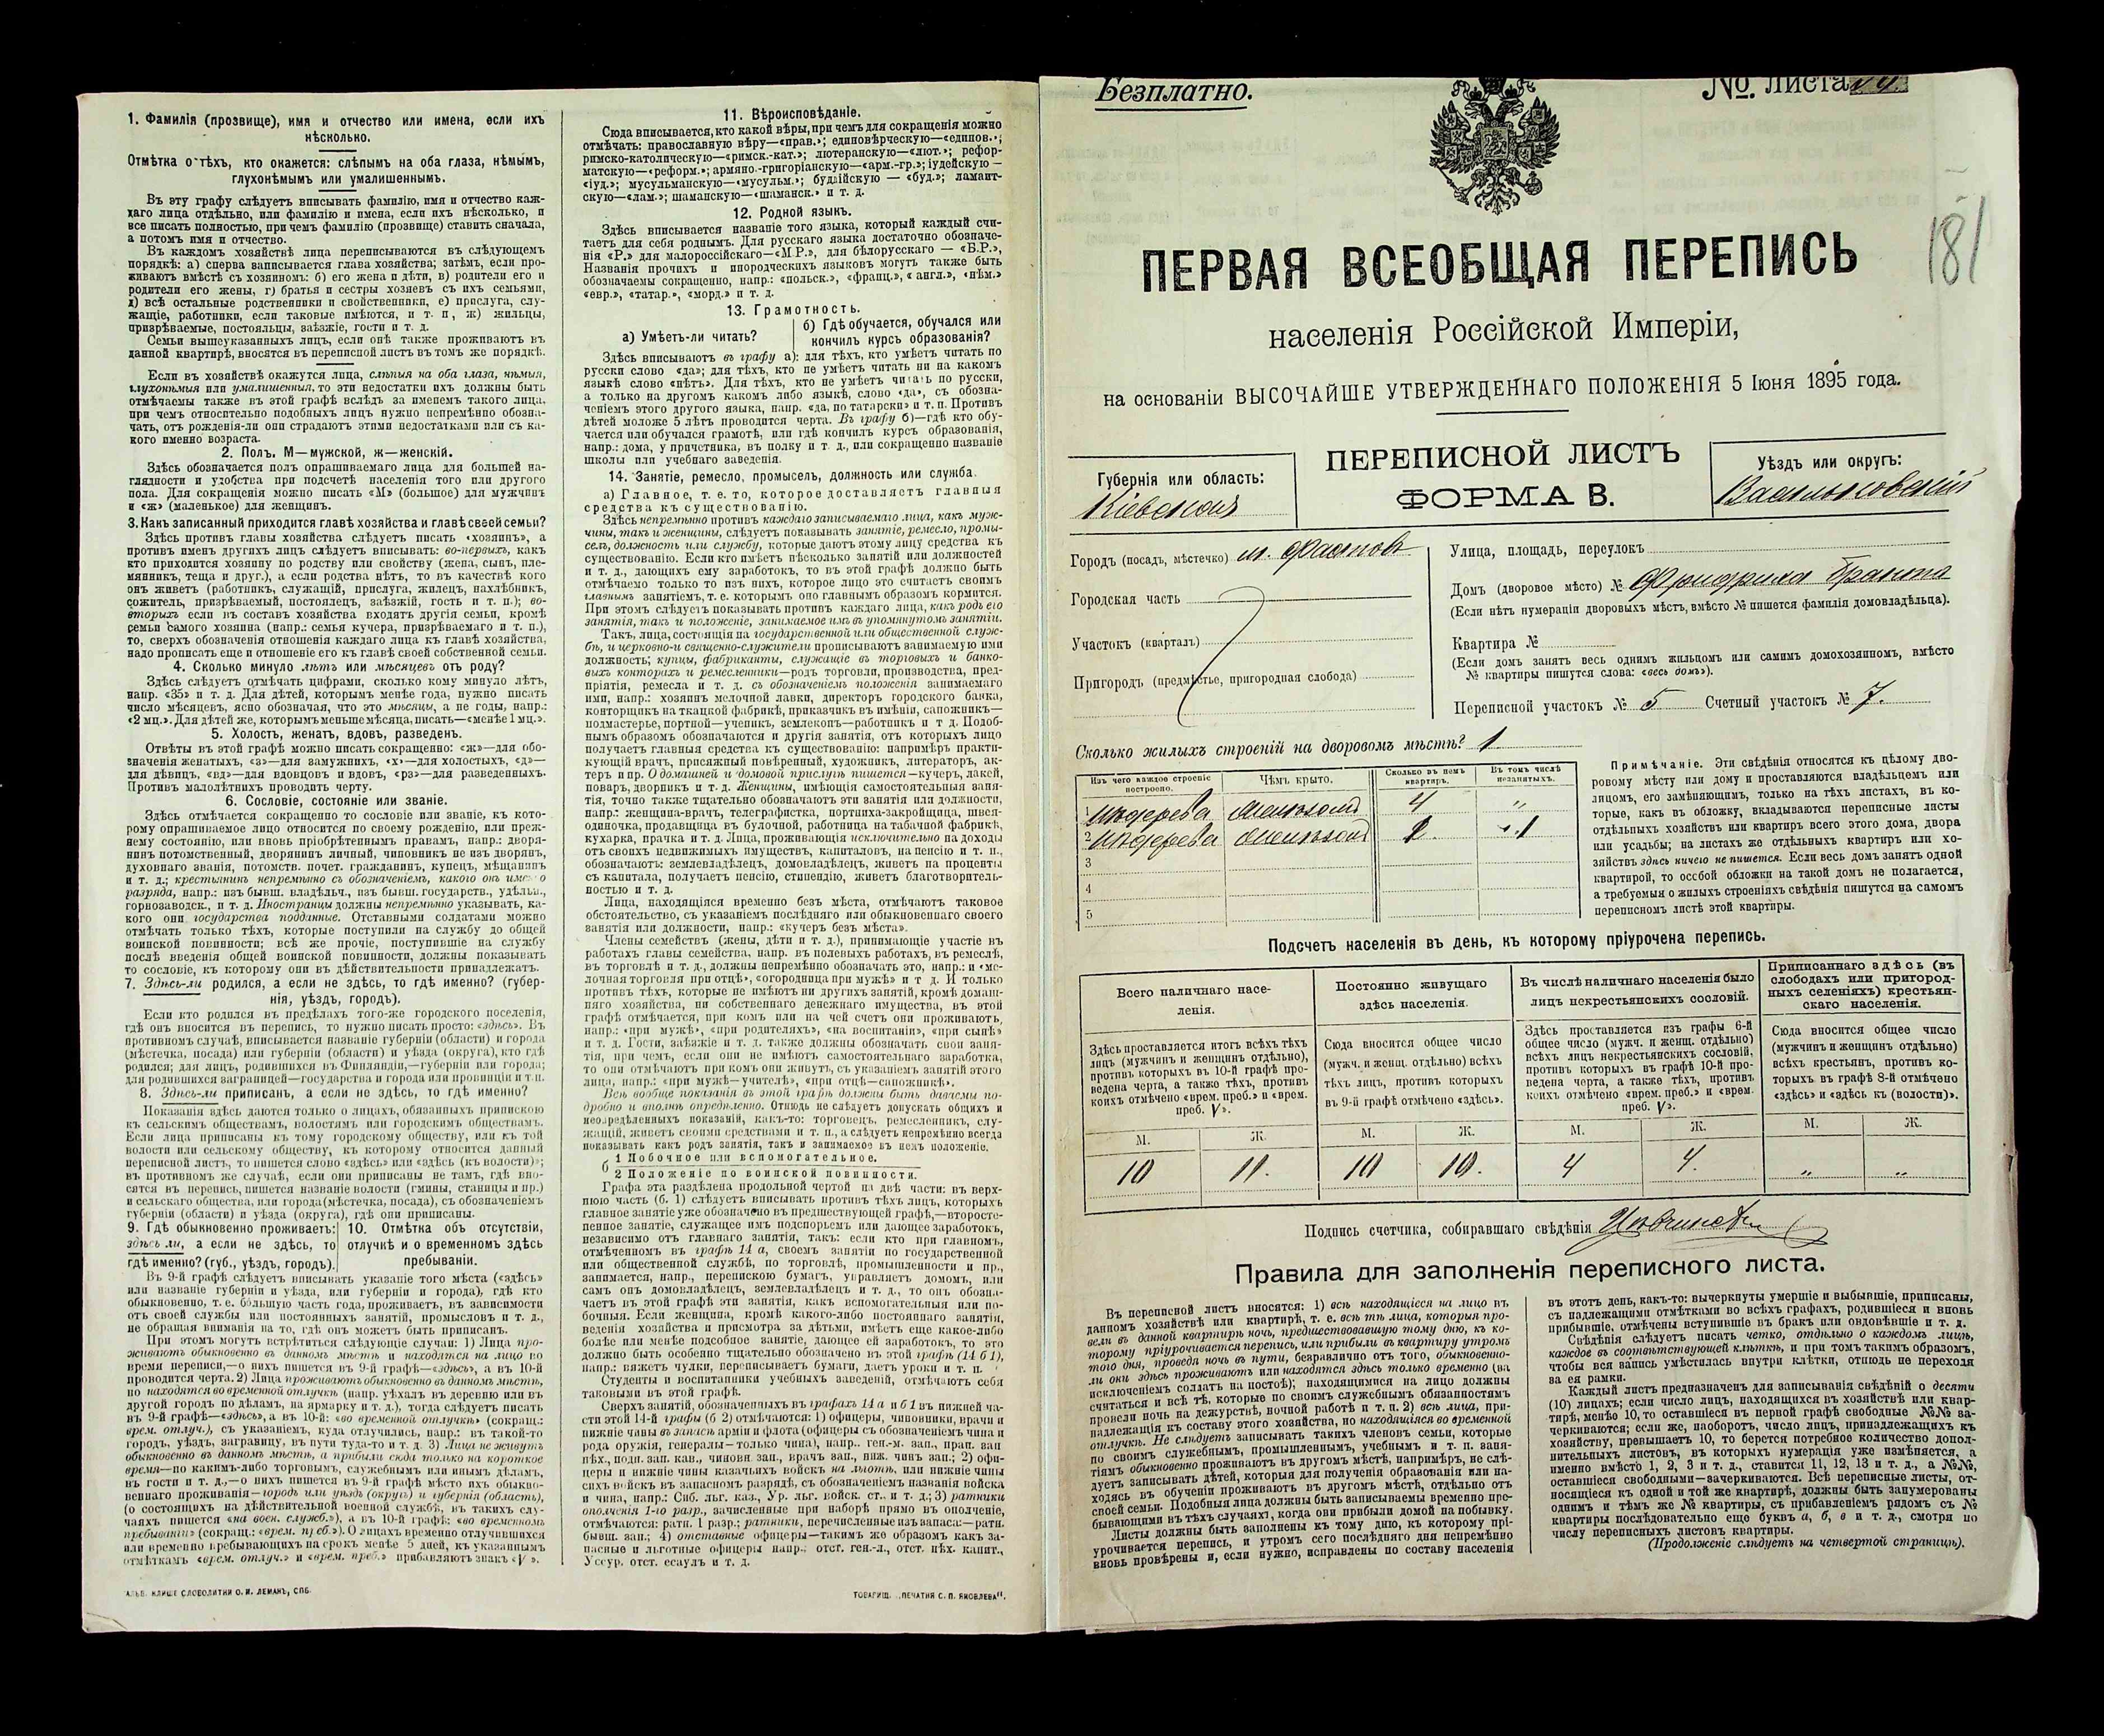 1. Фамилія (прозвище), имя и отчество или имена, если ихъ
нѣсколько.
Отмѣтка о тѣхъ, кто окажется: слѣпымъ на оба глаза, нѣмымъ,
глухонѣмымъ или умалишеннымъ.
Въ эту графу слѣдуетъ вписывать фамилію, имя и отчество каж-
даго лица отдѣльно, или фамилію и имена, если ихъ нѣсколько, и
все писать полностью, при чемъ фамилію (прозвище) ставить сначала,
а потомъ имя и отчество.
Въ каждомъ хозяйствѣ лица переписываются въ слѣдующемъ
порядкѣ: а) сперва записывается глава хозяйства; затѣмъ, если про-
живаютъ вмѣстѣ съ хозяиномъ: б) его жена и дѣти, в) родители его и
родители его жены, г) братья и сестры хозяевъ съ ихъ семьями,
д) всѣ остальные родственники и свойственники, е) прислуга, слу-
жащіе, работники, если таковые имѣются, и т. п., ж) жильцы,
призрѣваемые, постояльцы, заѣзжіе, гости и т. д.
Семьи вышеуказанныхъ лицъ, если онѣ также проживаютъ въ
данной квартирѣ, вносятся въ переписной листъ въ томъ же порядкѣ.
Если въ хозяйствѣ окажутся лица, слѣпыя на оба глаза, нѣмыя,
глухонѣмыя или умалишенныя, то эти недостатки ихъ должны быть
отмѣчаемы также въ этой графѣ вслѣдъ за именемъ такого лица,
при чемъ относительно подобныхъ лицъ нужно непремѣнно обозна-
чать, отъ рожденія-ли они страдаютъ этими недостатками или съ ка-
кого именно возраста.
2. Полъ. М—мужской, ж—женскій.
Здѣсь обозначается полъ опрашиваемаго лица для большей на-
глядности и удобства при подсчетѣ населенія того или другого
пола. Для сокращенія можно писать «М» (большое) для мужчинъ
и «ж» (маленькое) для женщинъ.
3. Какъ записанный приходится главѣ хозяйства и главѣ своей семьи?
Здѣсь противъ главы хозяйства слѣдуетъ писать «хозяинъ», а
противъ именъ другихъ лицъ слѣдуетъ вписывать: во-первыхъ, какъ
кто приходится хозяину по родству или свойству (жена, сынъ, пле-
мянникъ, теща и друг.), а если родства нѣтъ, то въ качествѣ кого
онъ живетъ (работникъ, служащій, прислуга, жилецъ, нахлѣбникъ,
сожитель, призрѣваемый, постоялецъ, заѣзжій, гость и т. п.); во-
вторыхъ если въ составъ хозяйства входятъ другія семьи, кромѣ
семьи самого хозяина (напр.: семья кучера, призрѣваемаго и т. п.),
то, сверхъ обозначенія отношенія каждаго лица къ главѣ хозяйства,
надо прописать еще и отношеніе его къ главѣ своей собственной семьи.
4. Сколько минуло лѣтъ или мѣсяцевъ отъ роду?
Здѣсь слѣдуетъ отмѣчать цифрами, сколько кому минуло лѣтъ,
напр. «35» и т. д. Для дѣтей, которымъ менѣе года, нужно писать
число мѣсяцевъ, ясно обозначая, что это мѣсяцы, а не годы, напр.:
«2 мц.». Для дѣтей же, которымъ меньше мѣсяца, писать—«менѣе 1 мц.».
5. Холостъ, женатъ, вдовъ, разведенъ.
Отвѣты въ этой графѣ можно писать сокращенно: «ж»—для обо-
значенія женатыхъ, «з»—для замужнихъ, «х»—для холостыхъ, «д»—
для дѣвицъ, «вд»—для вдовцовъ и вдовъ, «рз»—для разведенныхъ.
Противъ малолѣтнихъ проводить черту.
6. Сословіе, состояніе или званіе.
Здѣсь отмѣчается сокращенно то сословіе или званіе, къ кото-
рому опрашиваемое лицо относится по своему рожденію, или преж-
нему состоянію, или вновь пріобрѣтеннымъ правамъ, напр.: дворя-
нинъ потомственный, дворянинъ личный, чиновникъ не изъ дворянъ,
духовнаго званія, потомств. почет. гражданинъ, купецъ, мѣщанинъ
и т. д.; крестьянинъ непремѣнно съ обозначеніемъ, какого онъ имен о
разряда, напр.: изъ бывш. владѣльч., изъ бывш. государств., удѣльн.,
горнозаводск., и т. д. Иностранцы должны непремѣнно указывать, ка-
кого они государства подданные. Отставными солдатами можно
отмѣчать только тѣхъ, которые поступили на службу до общей
воинской повинности; всѣ же прочіе, поступившіе на службу
послѣ введенія общей воинской повинности, должны показывать
то сословіе, къ которому они въ дѣйствительности принадлежатъ.
7. Здѣсь-ли родился, а если не здѣсь, то гдѣ именно? (губер-
нія, уѣздъ, городъ).
Если кто родился въ предѣлахъ того-же городского поселенія,
гдѣ онъ вносится въ перепись, то нужно писать просто: «здѣсь». Въ
противномъ случаѣ, вписывается названіе губерніи (области) и города
(мѣстечка, посада) или губерніи (области) и уѣзда (округа), кто гдѣ
родился; для лицъ, родившихся въ Финляндіи,—губерніи или города;
для родившихся заграницей—государства и города или провинціи и т. п.
8. Здѣсь-ли приписанъ, а если не здѣсь, то гдѣ именно?
Показанія здѣсь даются только о лицахъ, обязанныхъ припискою
къ сельскимъ обществамъ, волостямъ или городскимъ обществамъ.
Если лица приписаны къ тому городскому обществу, или къ той
волости или сельскому обществу, къ которому относится данный
переписной листъ, то пишется слово «здѣсь» или «здѣсь (къ волости)»;
въ противномъ же случаѣ, если они приписаны не тамъ, гдѣ вно-
сятся въ перепись, пишется названіе волости (гмины, станицы и пр.)
и сельскаго общества, или города (мѣстечка, посада), съ обозначеніемъ
губерніи (области) и уѣзда (округа), гдѣ они приписаны.
9. Гдѣ обыкновенно проживаетъ:
здѣсь ли, а если не здѣсь, то
гдѣ именно? (губ., уѣздъ, городъ).
10. Отмѣтка объ отсутствіи,
отлучкѣ и о временномъ здѣсь
пребываніи.
Въ 9-й графѣ слѣдуетъ вписывать указаніе того мѣста («здѣсь»
или названіе губерніи и уѣзда, или губерніи и города), гдѣ кто
обыкновенно, т. е. большую часть года, проживаетъ, въ зависимости
отъ своей службы или постоянныхъ занятій, промысловъ и т. д.,
не обращая вниманія на то, гдѣ онъ можетъ быть приписанъ.
При этомъ могутъ встрѣтиться слѣдующіе случаи: 1) Лица про-
живаютъ обыкновенно въ данномъ мѣстѣ и находятся на лицо во
время переписи,—о нихъ пишется въ 9-й графѣ—«здѣсь», а въ 10-й
проводится черта. 2) Лица проживаютъ обыкновенно въ данномъ мѣстѣ,
но находятся во временной отлучкѣ (напр. уѣхалъ въ деревню или въ
другой городъ по дѣламъ, на ярмарку и т. д.), тогда слѣдуетъ писать
въ 9-й графѣ—«здѣсь», а въ 10-й: «во временной отлучкѣ» (сокращ.:
врем. отлуч.), съ указаніемъ, куда отлучились, напр.: въ такой-то
городъ, уѣздъ, заграницу, въ пути туда-то и т. д. 3) Лица не живутъ
обыкновенно въ данномъ мѣстѣ, а прибыли сюда только на короткое
время—по какимъ-либо торговымъ, служебнымъ или инымъ дѣламъ,
въ гости и т. д.,—о нихъ пишется въ 9-й графѣ мѣсто ихъ обыкно-
веннаго проживанія—городъ или уѣздъ (округъ) и губернія (область),
(о состоящихъ на дѣйствительной военной службѣ, въ такихъ слу-
чаяхъ пишется «на воен. служб.»), а въ 10-й графѣ: «во временномъ
пребываніи» (сокращ.: «врем. преб.»). О лицахъ временно отлучившихся
или временно пребывающихъ на срокъ менѣе 5 дней, къ указаннымъ
отмѣткамъ «врем. отлуч.» и «врем. преб.» прибавляютъ знакъ «V».
АЛЬБ. КЛИШЕ СЛОВОЛИТНИ О. И. ЛЕМАНЪ, СПБ.
11. Вѣроисповѣданіе.
Сюда вписывается, кто какой вѣры, при чемъ для сокращенія можно
отмѣчать: православную вѣру—«прав.»; единовѣрческую—«единов.»;
римско-католическую—«римск.-кат.»; лютеранскую—«лют.»; рефор-
матскую—«реформ.»; армяно-григоріанскую—«арм.-гр.»; іудейскую—
«іуд.»; мусульманскую—«мусульм.»; буддійскую — «буд.»; ламаит-
скую—«лам.»; шаманскую—«шаманск.» и т. д.
12. Родной языкъ.
Здѣсь вписывается названіе того языка, который каждый счи-
таетъ для себя роднымъ. Для русскаго языка достаточно обозначе-
нія «Р.» для малороссійскаго—«М.Р.», для бѣлорусскаго — «Б.Р.»,
Названія прочихъ и инородческихъ языковъ могутъ также быть
обозначаемы сокращенно, напр.: «польск.», «франц.», « англ.», «нѣм.»
«евр.», «татар.», «морд.» и т. д.
13. Грамотность.
а) Умѣетъ-ли читать?
б) Гдѣ обучается, обучался или
кончилъ курсъ образованія?
Здѣсь вписываютъ въ графу а): для тѣхъ, кто умѣетъ читать по
русски слово «да»; для тѣхъ, кто не умѣетъ читать ни на какомъ
языкѣ слово «нѣтъ». Для тѣхъ, кто не умѣетъ читать по русски,
а только на другомъ какомъ либо языкѣ, слово «да», съ обозна-
ченіемъ этого другого языка, напр. «да, по татарски» и т. п. Противъ
дѣтей моложе 5 лѣтъ проводится черта. Въ графу б)—гдѣ кто обу-
чается или обучался грамотѣ, или гдѣ кончилъ курсъ образованія,
напр.: дома, у причетника, въ полку и т. д., или сокращенно названіе
школы или учебнаго заведенія.
14. Занятіе, ремесло, промыселъ, должность или служба.
а) Главное, т. е. то, которое доставляетъ главныя
средства къ существованію.
Здѣсь непремѣнно противъ каждаго записываемаго лица, какъ муж-
чины, такъ и женщины, слѣдуетъ показывать занятіе, ремесло, промы-
селъ, должность или службу, которые даютъ этому лицу средства къ
существованію. Если кто имѣетъ нѣсколько занятій или должностей
и т. д., дающихъ ему заработокъ, то въ этой графѣ должно быть
отмѣчаемо только то изъ нихъ, которое лицо это считаетъ своимъ
главнымъ занятіемъ, т. е. которымъ оно главнымъ образомъ кормится.
При этомъ слѣдуетъ показывать противъ каждаго лица, какъ родъ его
занятія, такъ и положеніе, занимаемое имъ въ упомянутомъ занятіи.
Такъ, лица, состоящія на государственной или общественной служ-
бѣ, и церковно-и священно-служители прописываютъ занимаемую ими
должность; купцы, фабриканты, служащіе въ торговыхъ и банко-
выхъ конторахъ и ремесленники—родъ торговли, производства, пред-
пріятія, ремесла и т. д. съ обозначеніемъ положенія занимаемаго
ими, напр.: хозяинъ мелочной лавки, директоръ городского банка,
конторщикъ на ткацкой фабрикѣ, приказчикъ въ имѣніи, сапожникъ—
подмастерье, портной—ученикъ, землекопъ—работникъ и т д. Подоб-
нымъ образомъ обозначаются и другія занятія, отъ которыхъ лицо
получаетъ главныя средства къ существованію: напримѣръ практи-
кующій врачъ, присяжный повѣренный, художникъ, литераторъ, ак-
теръ и пр. О домашней и домовой прислугѣ пишется—кучеръ, лакей,
поваръ, дворникъ и т. д. Женщины, имѣющія самостоятельныя заня-
тія, точно также тщательно обозначаютъ эти занятія или должности,
напр.: женщина-врачъ, телеграфистка, портниха-закройщица, швея-
одиночка, продавщица въ булочной, работница на табачной фабрикѣ,
кухарка, прачка и т. д. Лица, проживающія исключительно на доходы
отъ своихъ недвижимыхъ имуществъ, капиталовъ, на пенсію и т. п.,
обозначаютъ: землевладѣлецъ, домовладѣлецъ, живетъ на проценты
съ капитала, получаетъ пенсію, стипендію, живетъ благотворитель-
ностью и т. д.
Лица, находящіяся временно безъ мѣста, отмѣчаютъ таковое
обстоятельство, съ указаніемъ послѣдняго или обыкновеннаго своего
занятія или должности, напр.: «кучеръ безъ мѣста».
Члены семействъ (жены, дѣти и т. д.), принимающіе участіе въ
работахъ главы семейства, напр. въ полевыхъ работахъ, въ ремеслѣ,
въ торговлѣ и т. д., должны непремѣнно обозначать это, напр.: и «ме-
лочная торговля при отцѣ», «огородница при мужѣ» и т д. И только
противъ тѣхъ, которые не имѣютъ ни другихъ занятій, кромѣ домаш-
няго хозяйства, ни собственнаго денежнаго имущества, въ этой
графѣ отмѣчается, при комъ или на чей счетъ они проживаютъ,
напр.: «при мужѣ», «при родителяхъ», «на воспитаніи», «при сынѣ»
и т. д. Гости, заѣзжіе и т. д. также должны обозначать свои заня-
тія, при чемъ, если они не имѣютъ самостоятельнаго заработка,
то они отмѣчаютъ при комъ они живутъ, съ указаніемъ занятій этого
лица, напр.: «при мужѣ—учителѣ», «при отцѣ—сапожникѣ».
Всѣ вообще показанія въ этой графѣ должны быть даваемы по-
дробно и вполнѣ опредѣленно. Отнюдь не слѣдуетъ допускать общихъ и
неопредѣленныхъ показаній, какъ-то: торговецъ, ремесленникъ, слу-
жащій, живетъ своими средствами и т. п., а слѣдуетъ непремѣнно всегда
показывать какъ родъ занятія, такъ и занимаемое въ немъ положеніе.
б
1 Побочное или вспомогательное.
2 Положеніе по воинской повинности.
Графа эта раздѣлена продольной чертой на двѣ части: въ верх-
нюю часть (б. 1) слѣдуетъ вписывать противъ тѣхъ лицъ, которыхъ
главное занятіе уже обозначено въ предшествующей графѣ,—второсте-
пенное занятіе, служащее имъ подспорьемъ или дающее заработокъ,
независимо отъ главнаго занятія, такъ: если кто при главномъ,
отмѣченномъ въ графѣ 14 а, своемъ занятіи по государственной
или общественной службѣ, по торговлѣ, промышленности и пр.,
занимается, напр., перепискою бумагъ, управляетъ домомъ, или
самъ онъ домовладѣлецъ, землевладѣлецъ и т. д., то онъ обозна-
чаетъ въ этой графѣ эти занятія, какъ вспомогательныя или по-
бочныя. Если женщина, кромѣ какого-либо постояннаго занятія,
веденія хозяйства и присмотра за дѣтьми, имѣетъ еще какое-либо
болѣе или менѣе подсобное занятіе, дающее ей заработокъ, то это
должно быть особенно тщательно обозначено въ этой графѣ (14 б 1),
напр.: вяжетъ чулки, переписываетъ бумаги, даетъ уроки и т. п.
Студенты и воспитанники учебныхъ заведеній, отмѣчаютъ себя
таковыми въ этой графѣ.
Сверхъ занятій, обозначенныхъ въ графахъ 14 а и б 1 въ нижней ча-
сти этой 14-й графы (б 2) отмѣчаются: 1) офицеры, чиновники, врачи и
нижніе чины въ запасѣ арміи и флота (офицеры съ обозначеніемъ чина и
рода оружія, генералы—только чина), напр.. ген.-м. зап., прап. зап
пѣх., подп. зап. кав., чиновн зап., врачъ зап., ниж. чинъ зап.; 2) офи-
церы и нижніе чины казачьихъ войскъ на льготѣ, или нижніе чины
сихъ войскъ въ запасномъ разрядѣ, съ обозначеніемъ названія войска
и чина, напр.: Сиб. льг. каз., Ур. льг. войск. ст.. и т. д.; 3) ратники
ополченія 1-го разр., зачисленные при наборѣ прямо въ ополченіе,
отмѣчаются: ратн. 1 разр.; ратники, перечисленные изъ запаса:—ратн.
бывш. зап.; 4) отставные офицеры—такимъ же образомъ какъ за-
пасные и льготные офицеры напр.: отст. ген.-л., отст. пѣх. капит.,
Уссур. отст. есаулъ и т. д.
ТОВАРИЩ. „ПЕЧАТНЯ С. П. ЯКОВЛЕВА“.
Безплатно.
№. листа
181
ПЕРВАЯ ВСЕОБЩАЯ ПЕРЕПИСЬ
населенія Россійской Имперіи,
на основаніи ВЫСОЧАЙШЕ УТВЕРЖДЕННАГО ПОЛОЖЕНІЯ 5 Іюня 1895 года.
Губернія или область:
Кіевская
ПЕРЕПИСНОЙ ЛИСТЪ
ФОРМА В.
Уѣздъ или округъ:
Васильковскій
Городъ (посадъ, мѣстечко) м. Фастовъ
Городская часть
Участокъ (кварталъ)
Пригородъ (предмѣстье, пригородная слобода)
Улица, площадь, переулокъ
Домъ (дворовое мѣсто) № Фридриха Бранта
(Если нѣтъ нумераціи дворовыхъ мѣстъ, вмѣсто № пишется фамилія домовладѣльца).
Квартира №
(Если домъ занятъ весь однимъ жильцомъ или самимъ домохозяиномъ, вмѣсто
№ квартиры пишутся слова: «весь домъ»).
Переписной участокъ № 5 Счетный участокъ № 7.
Сколько жилыхъ строеній на дворовомъ мѣстѣ? 1
Изъ чего каждое строеніе построено.
Чѣмъ крыто.
Сколько въ немъ квартиръ.
Въ томъ числѣ незанятыхъ.
1 изъ дерева 4 „
2 изъ дерева 2. 1
3
4
5
Примѣчаніе. Эти свѣдѣнія относятся къ цѣлому дво-
ровому мѣсту или дому и проставляются владѣльцемъ или
лицомъ, его замѣняющимъ, только на тѣхъ листахъ, въ ко-
торые, какъ въ обложку, вкладываются переписные листы
отдѣльныхъ хозяйствъ или квартиръ всего этого дома, двора
или усадьбы; на листахъ же отдѣльныхъ квартиръ или хо-
зяйствъ здѣсь ничего не пишется. Если весь домъ занятъ одной
квартирой, то особой обложки на такой домъ не полагается,
а требуемыя о жилыхъ строеніяхъ свѣдѣнія пишутся на самомъ
переписномъ листѣ этой квартиры.
Подсчетъ населенія въ день, къ которому пріурочена перепись.
Всего наличнаго насе-
ленія.
Постоянно живущаго
здѣсь населенія.
Въ числѣ наличнаго населенія было
лицъ некрестьянскихъ сословій.
Приписаннаго здѣсь (въ
слободахъ или пригород-
ныхъ селеніяхъ) крестьян-
скаго населенія.
Здѣсь проставляется итогъ всѣхъ тѣхъ
лицъ (мужчинъ и женщинъ отдѣльно),
противъ которыхъ въ 10-й графѣ про-
ведена черта, а также тѣхъ, противъ
коихъ отмѣчено «врем. преб.» и «врем.
преб. V».
Сюда вносится общее число
(мужч. и женщ. отдѣльно) всѣхъ
тѣхъ лицъ, противъ которыхъ
въ 9-й графѣ отмѣчено «здѣсь».
Здѣсь проставляется изъ графы 6-й
общее число (мужч. и женщ. отдѣльно)
всѣхъ лицъ некрестьянскихъ сословій,
противъ которыхъ въ графѣ 10-й про-
ведена черта, а также тѣхъ, противъ
коихъ отмѣчено «врем. преб.» и «врем.
преб. V».
Сюда вносится общее число
(мужчинъ и женщинъ отдѣльно)
всѣхъ крестьянъ, противъ ко-
торыхъ въ графѣ 8-й отмѣчено
«здѣсь» и «здѣсь къ (волости)».
М. Ж. М. Ж. М. Ж. М. Ж.
10 11. 10 10. 4 4. „ „
Подпись счетчика, собиравшаго свѣдѣнія
Правила для заполненія переписного листа.
Въ переписной листъ вносятся: 1) всѣ находящіеся на лицо въ
данномъ хозяйствѣ или квартирѣ, т. е. всѣ тѣ лица, которыя про-
вели въ данной квартирѣ ночь, предшествовавшую тому дню, къ ко-
торому пріурочивается перепись, или прибыли въ квартиру утромъ
того дня, проведя ночь въ пути, безразлично отъ того, обыкновенно-
ли они здѣсь проживаютъ или находятся здѣсь только временно (за
исключеніемъ солдатъ на постоѣ); находящимися на лицо должны
считаться и всѣ тѣ, которые по своимъ служебнымъ обязанностямъ
провели ночь на дежурствѣ, ночной работѣ и т. п. 2) всѣ лица, при-
надлежащія къ составу этого хозяйства, но находящіяся во временной
отлучкѣ. Не слѣдуетъ записывать такихъ членовъ семьи, которые
по своимъ служебнымъ, промышленнымъ, учебнымъ и т. п. заня-
тіямъ обыкновенно проживаютъ въ другомъ мѣстѣ, напримѣръ, не слѣ-
дуетъ записывать дѣтей, которыя для полученія образованія или на-
ходясь въ обученіи проживаютъ въ другомъ мѣстѣ, отдѣльно отъ
своей семьи. Подобныя лица должны быть записываемы временно пре-
бывающими въ тѣхъ случаяхъ, когда они прибыли домой на побывку.
Листы должны быть заполнены къ тому дню, къ которому прі-
урочивается перепись, и утромъ сего послѣдняго дня непремѣнно
вновь провѣрены и, если нужно, исправлены по составу населенія
въ этотъ день, какъ-то: вычеркнуты умершіе и выбывшіе, приписаны,
съ надлежащими отмѣтками во всѣхъ графахъ, родившіеся и вновь
прибывшіе, отмѣчены вступившіе въ бракъ или овдовѣвшіе и т. д.
Свѣдѣнія слѣдуетъ писать четко, отдѣльно о каждомъ лицѣ,
каждое въ соотвѣтствующей клѣткѣ, и при томъ такимъ образомъ,
чтобы вся запись умѣстилась внутри клѣтки, отнюдь не переходя
за ея рамки.
Каждый листъ предназначенъ для записыванія свѣдѣній о десяти
(10) лицахъ; если число лицъ, находящихся въ хозяйствѣ или квар-
тирѣ, менѣе 10, то оставшіеся въ первой графѣ свободные №№ за-
черкиваются; если же, наоборотъ, число лицъ, принадлежащихъ къ
хозяйству, превышаетъ 10, то берется потребное количество допол-
нительныхъ листовъ, въ которыхъ нумерація уже измѣняется, а
именно вмѣсто 1, 2, 3 и т. д., ставится 11, 12, 13 и т. д., а №№,
оставшіеся свободными—зачеркиваются. Всѣ переписные листы, от-
носящіеся къ одной и той же квартирѣ, должны быть занумерованы
однимъ и тѣмъ же № квартиры, съ прибавленіемъ рядомъ съ №
квартиры послѣдовательно еще буквъ а, б, в и т. д., смотря по
числу переписныхъ листовъ квартиры.
(Продолженіе слѣдуетъ на четвертой страницѣ).